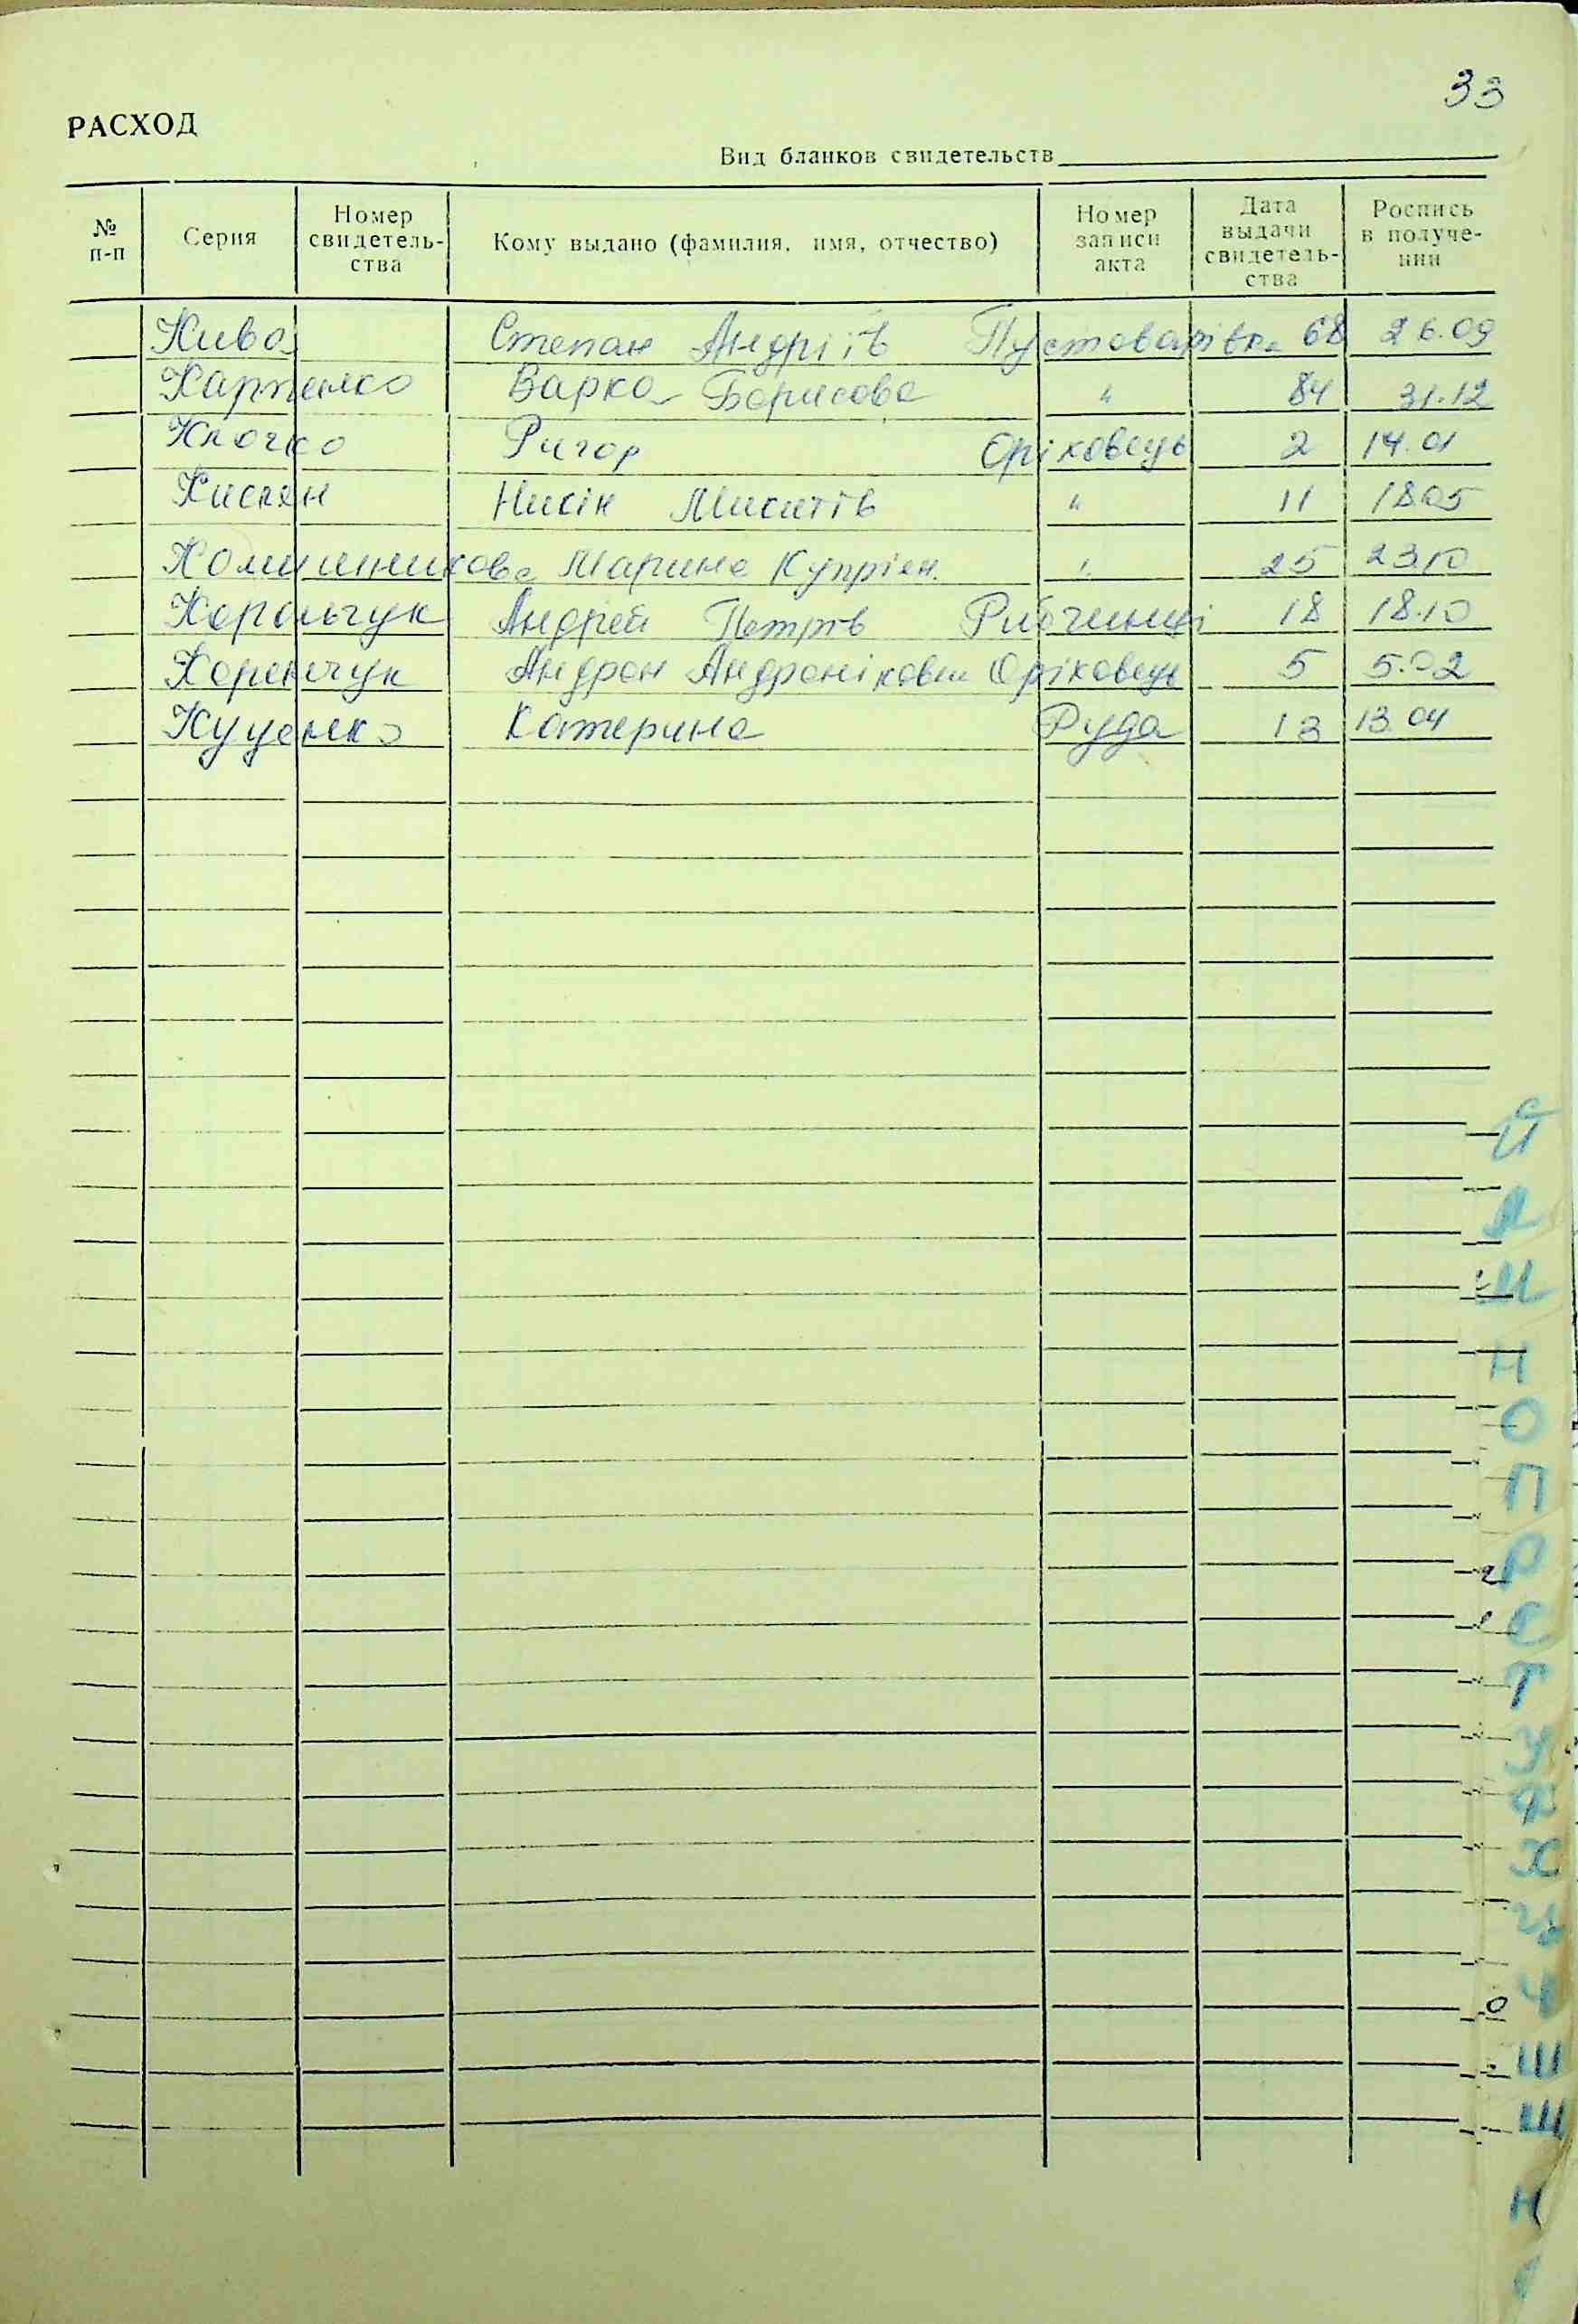 33
РАСХОД
Вид бланков свидетельств
№ п-п
Серия
Номер свидетель- ства
Кому выдано (фамилия, имя, отчество)
Номер записи акта
Дата выдачи свидетель- ства
Роспись в получе- нии
Кива Степан Андріїв Пустоварівка 68 26.09
Карпенко Варка Борисова " 84 31.12
Клочко Ригор Оріховець 2 14.01
Нисін Микитів " 11 18.05
Марина Купріян. " 25 23.10
Корольчук Андрей Петрів Рибчинці 18 18.10
Коренчук Андрон Андронікович Оріховець 5 5.02
Куценко Катерина Руда 13 13.04
Й
Л
М
Н
О
П
Р
С
Т
У
Ф
Х
Ц
Ч
Ш
Щ